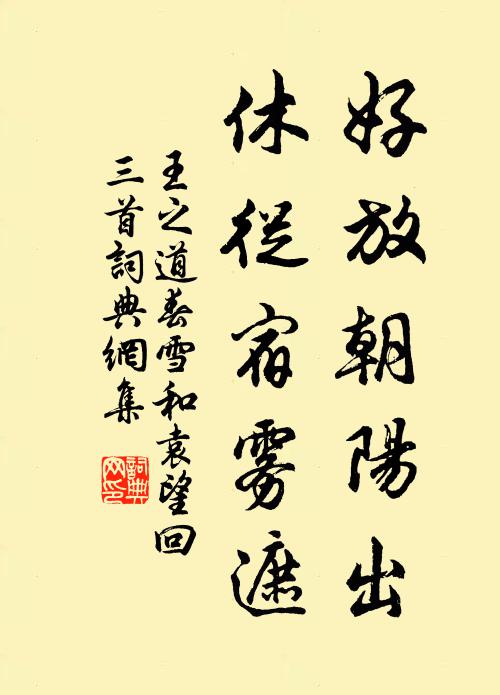 好放朝陽出
休從宿雾遮
王之道春雪和袁望回
三首詞典網集
詞典网印